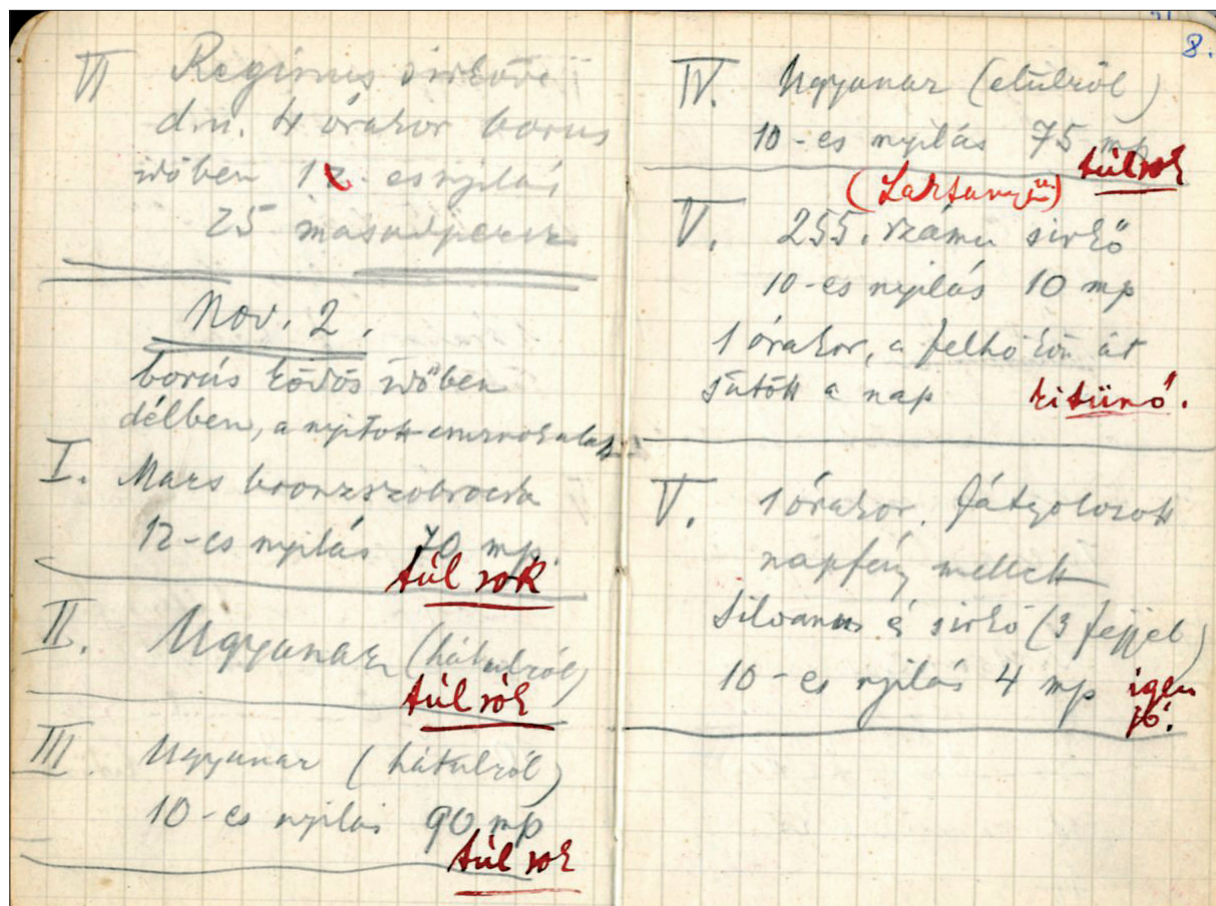 VI Reginus sirköve
du. 4 órakor borus
időben 12-es nyilás
25 másodpercz
Nov. 2.
borús ködös időben
délben, a nyitott
I. Mars bronzszobrocska
12-es nyilás 70 mp.
túl sok
II. Ugyanaz (hátulról)
túl sok
III. Ugyanaz (hátulról)
10-es nyilás 90 mp
túl sok
8.
IV. Ugyanaz (elülről)
10-es nyilás 75 mp
túl sok
V. 255. számu sirkő
10-es nyilás 10 mp
1 órakor, a felhőkön át
sütött a nap kitünő.
V. 1 órakor. Fátyolozott
napfény mellett
Silvanus és sirkő (3 fejjel)
10-es nyilás 4 mp igen
jó.